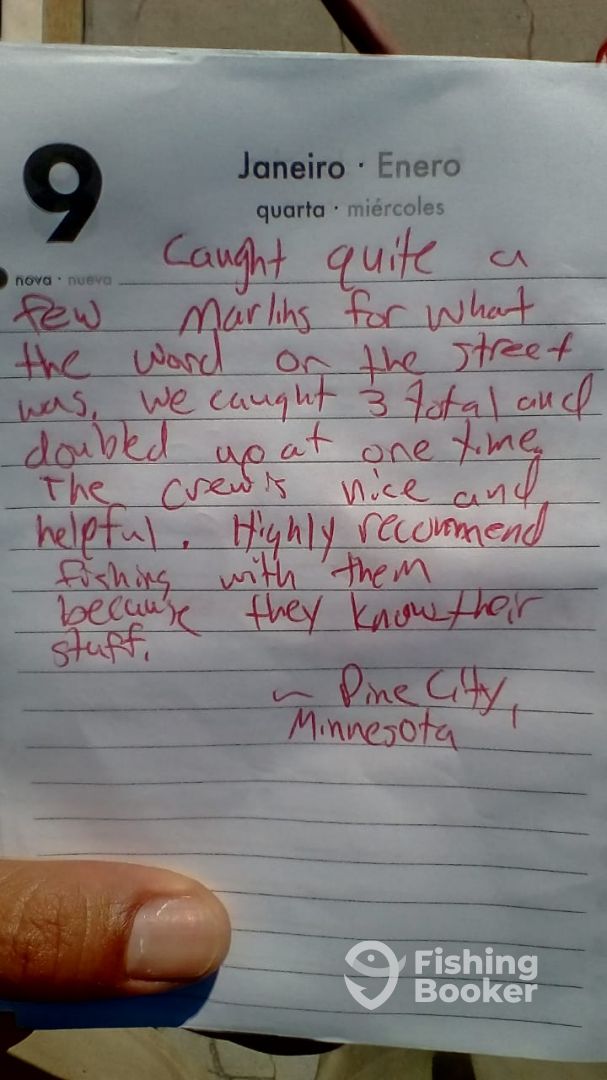 9
Janeiro · Enero
quarta · miércoles
nova · nueva
Caught quite a
few Marlins for what
the word on the street
was. We caught 3 total and
doubled up at one time.
The crew is nice and
helpful. Highly recommend
fishing with them
because they know their
stuff.
~ Pine City,
Minnesota
Fishing
Booker